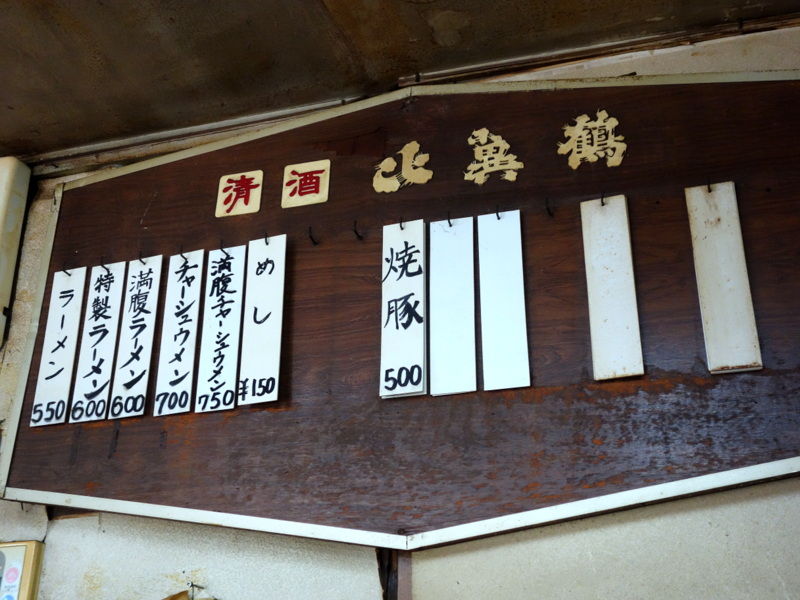 清酒 比翼鶴
ラーメン 550
特製ラーメン 600
満腹ラーメン 600
チャーシュウメン 700
満腹チャーシュウメン 750
めし ¥150
焼豚 500